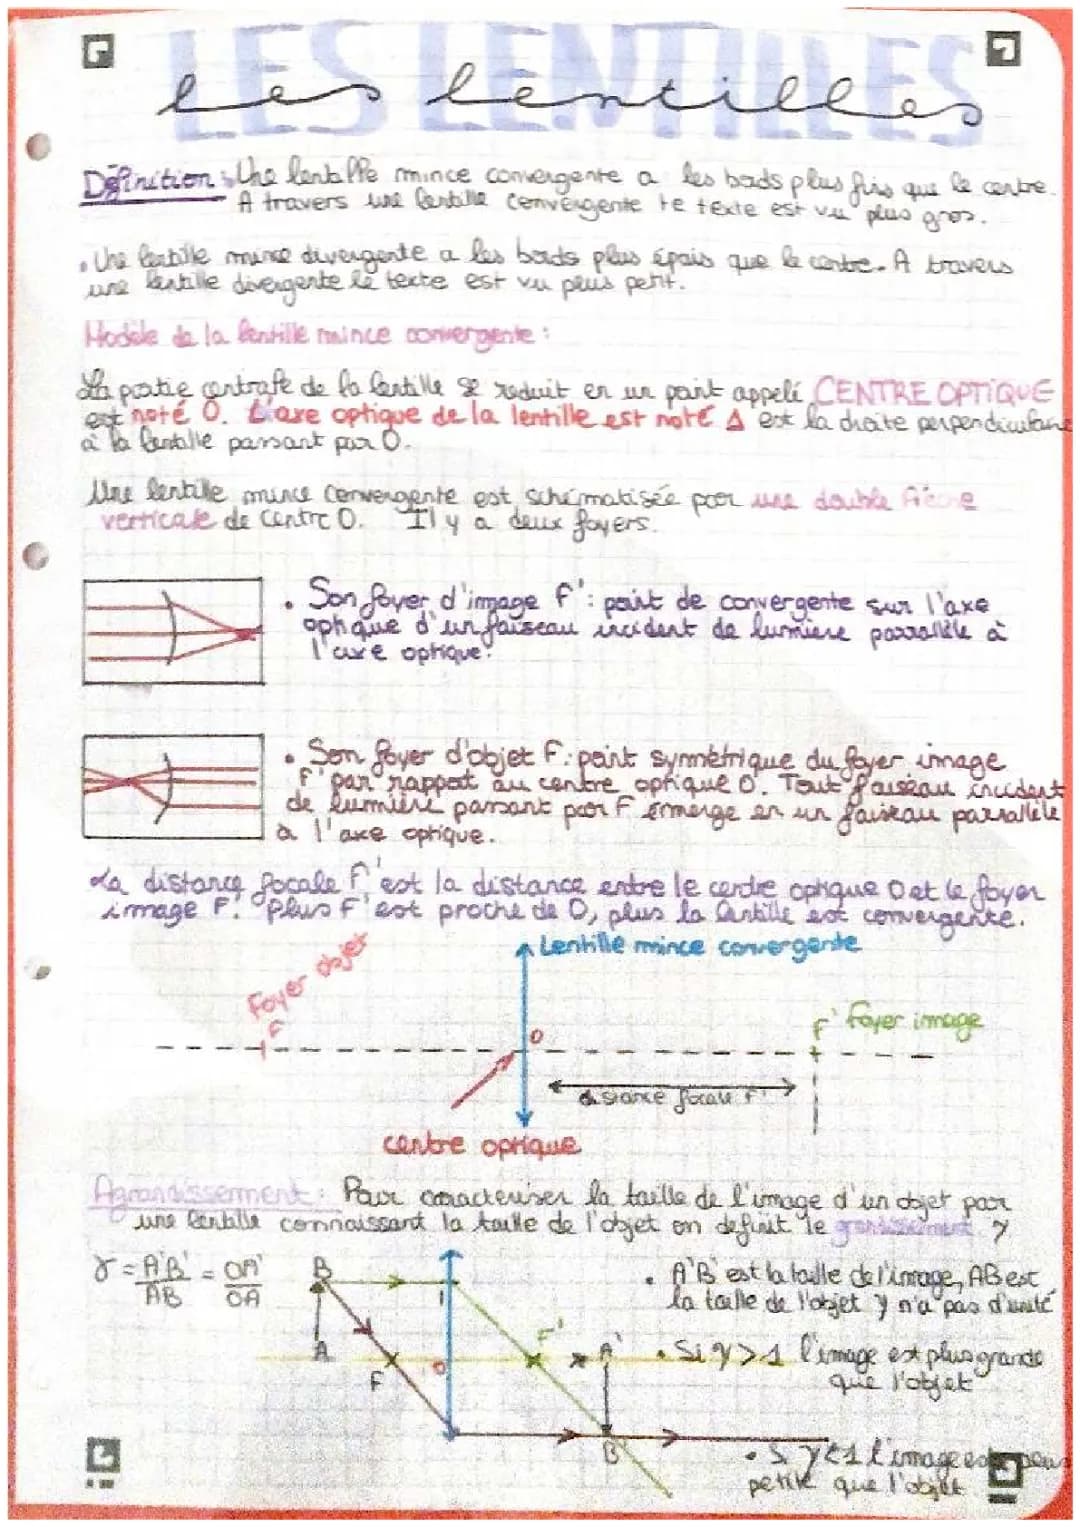 LES LENTILLES
les lentilles
Définition : Une lentille mince convergente a les bords plus fins que le centre.
A travers une lentille convergente le texte est vu plus gros.
. Une lentille mince divergente a les bords plus épais que le centre. A travers
une lentille divergente le texte est vu plus petit.
Modèle de la lentille mince convergente :
La partie centrale de la lentille se reduit en un point appelé CENTRE OPTIQUE
est noté O. L'axe optique de la lentille est noté Δ est la droite perpendiculaire
à la lentille passant par O.
Une lentille mince convergente est schématisée par une double flèche
verticale de centre O. Il y a deux foyers.
. Son foyer d'image F' : point de convergente sur l'axe
optique d'un faisceau incident de lumière parrallèle à
l'axe optique.
. Son foyer d'objet F : point symétrique du foyer image
F' par rapport au centre optique O. Tout faisceau incident
de lumière passant par F émerge en un faisceau parrallèle
à l'axe optique.
La distance focale F' est la distance entre le centre optique O et le foyer
image F'. Plus F' est proche de O, plus la lentille est convergente.
Lentille mince convergente
Foyer objet
F
O
F' foyer image
distance focale F'
centre optique
Agrandissement : Pour caracteriser la taille de l'image d'un objet par
une lentille connaissant la taille de l'objet on definit le grandissement γ
γ = A'B' = OA'
AB OA
B
I
A
F
O
F'
A'
B'
. A'B' est la taille de l'image, AB est
la taille de l'objet γ n'a pas d'unité
. Si γ > 1 l'image est plus grande
que l'objet
. Si γ < 1 l'image est plus
petite que l'objet